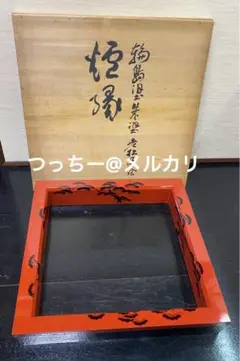 輪島塗朱塗老松蒔絵
炉縁
つっちー@メルカリ